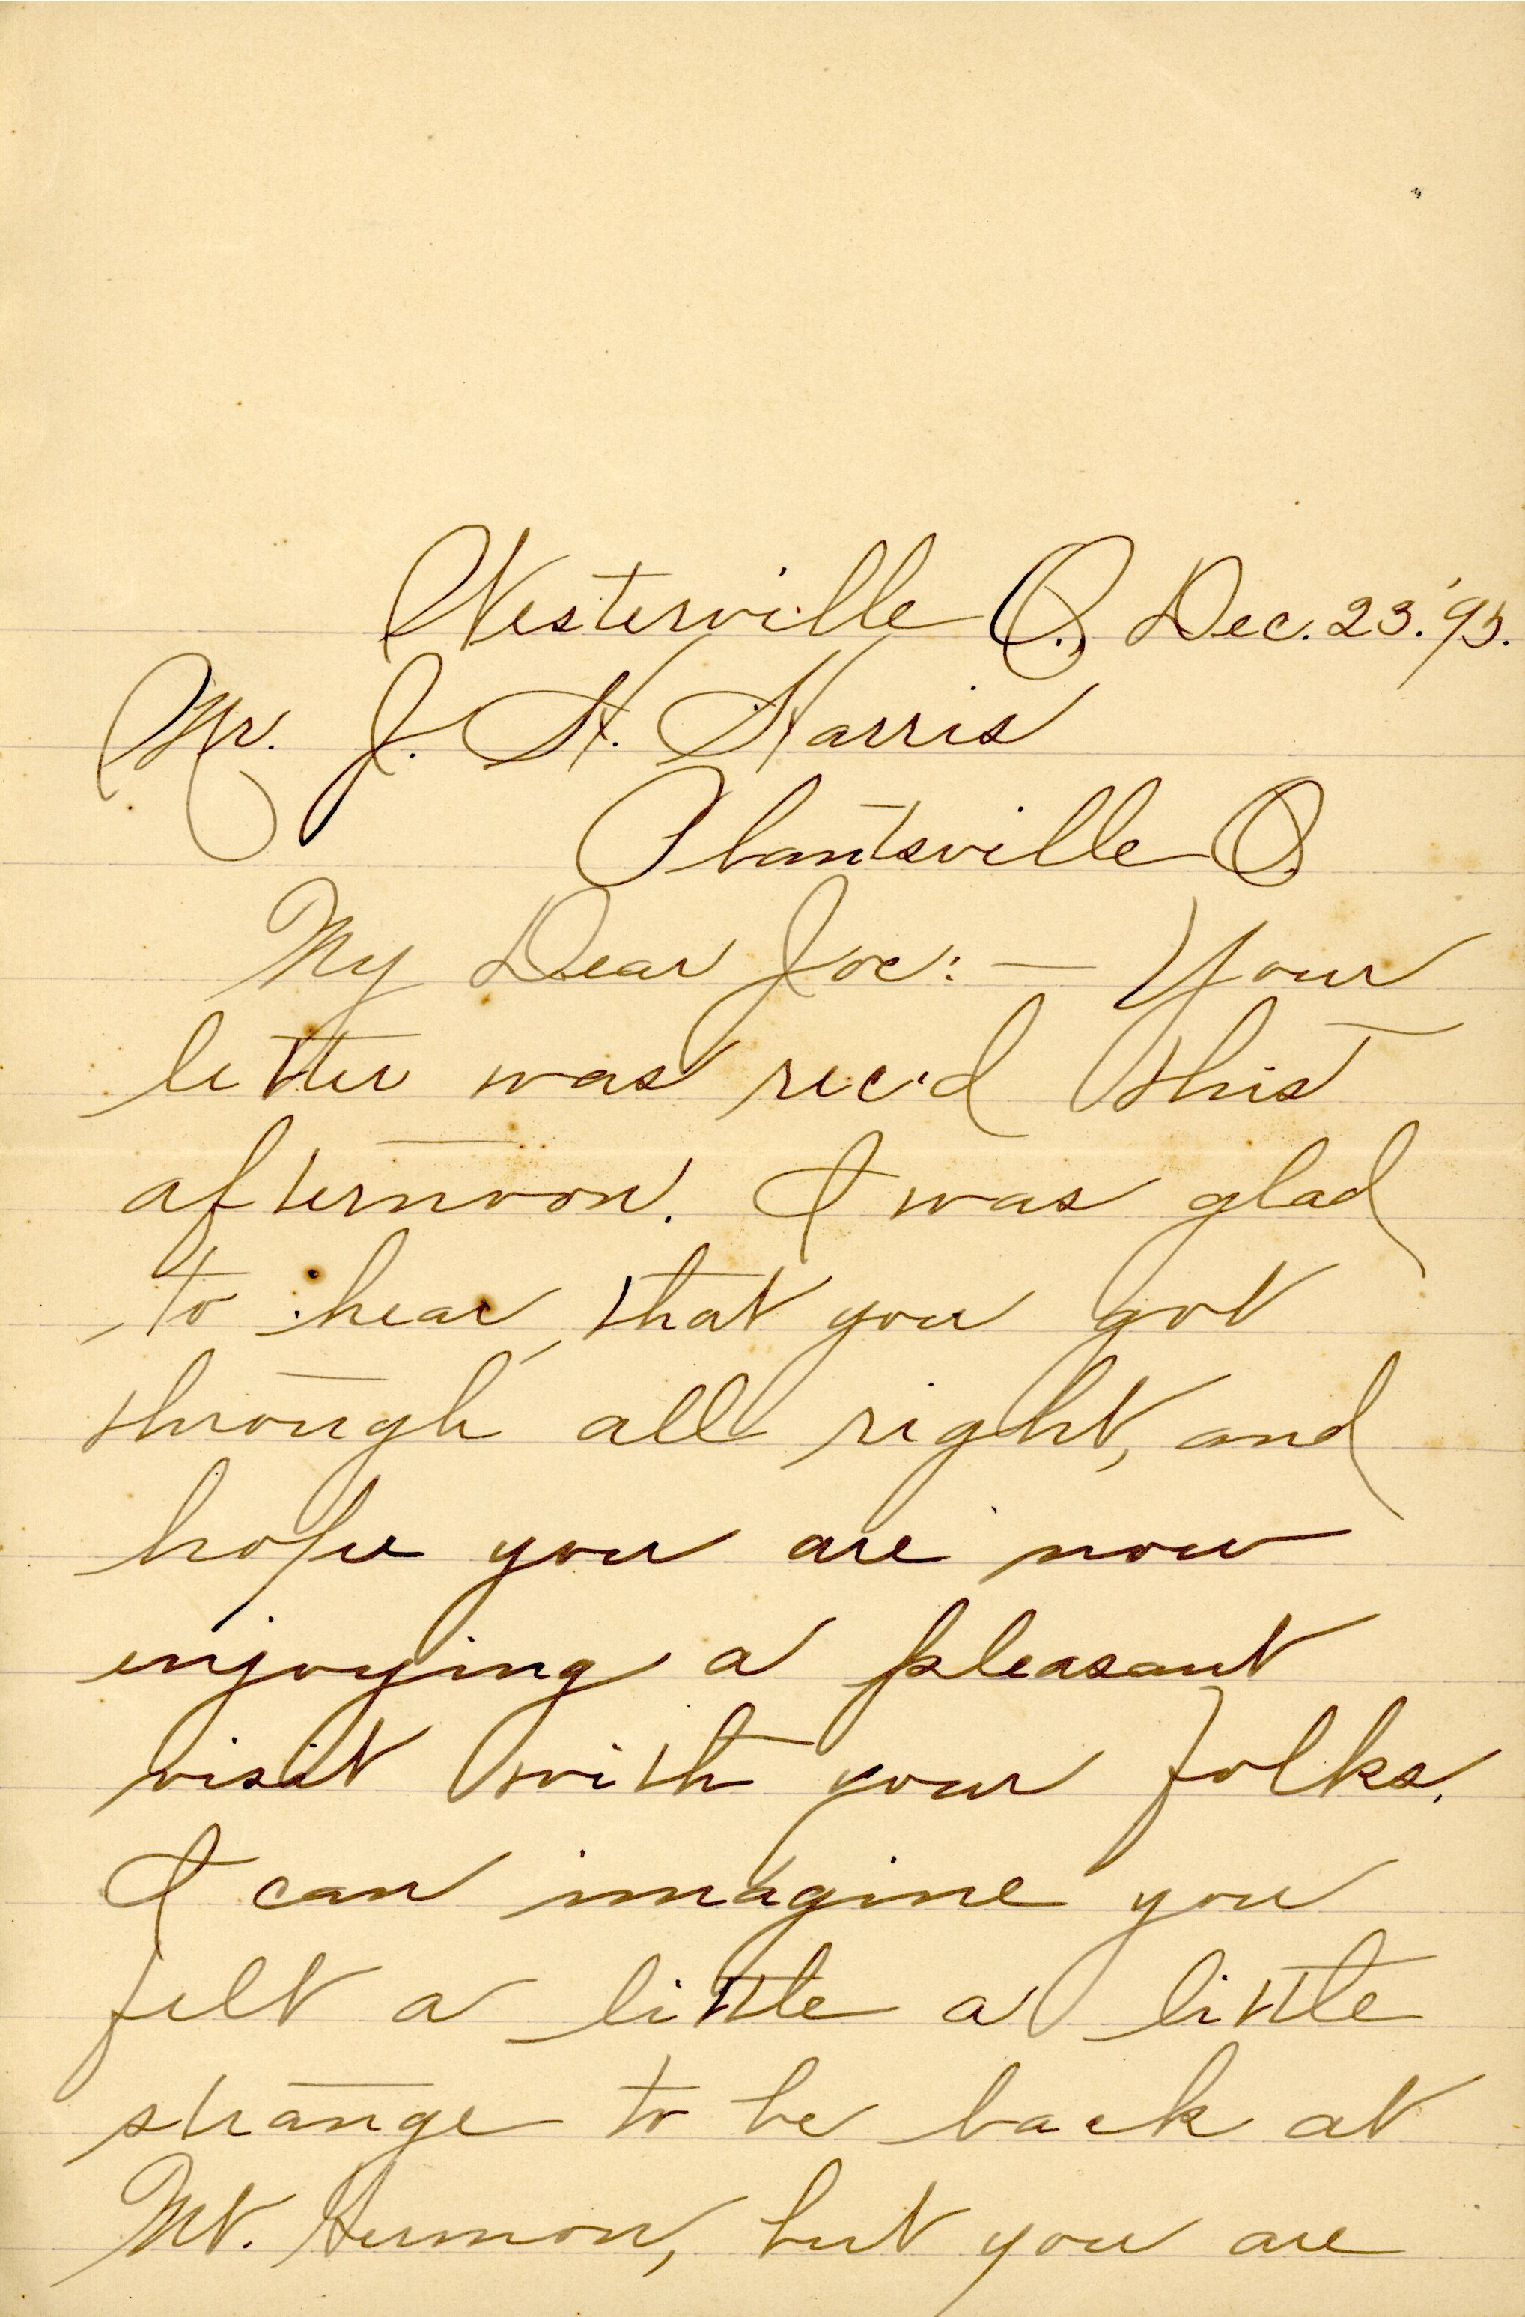 Westerville O., Dec. 23. '95.
Mr. J. H. Harris
Plantsville O.
My Dear Joe: — Your
letter was rec'd this
afternoon. I was glad
to hear that you got
through all right, and
hope you are now
enjoying a pleasant
visit with your folks.
I can imagine you
felt a little a little
strange to be back at
Mt. Hermon, but you are